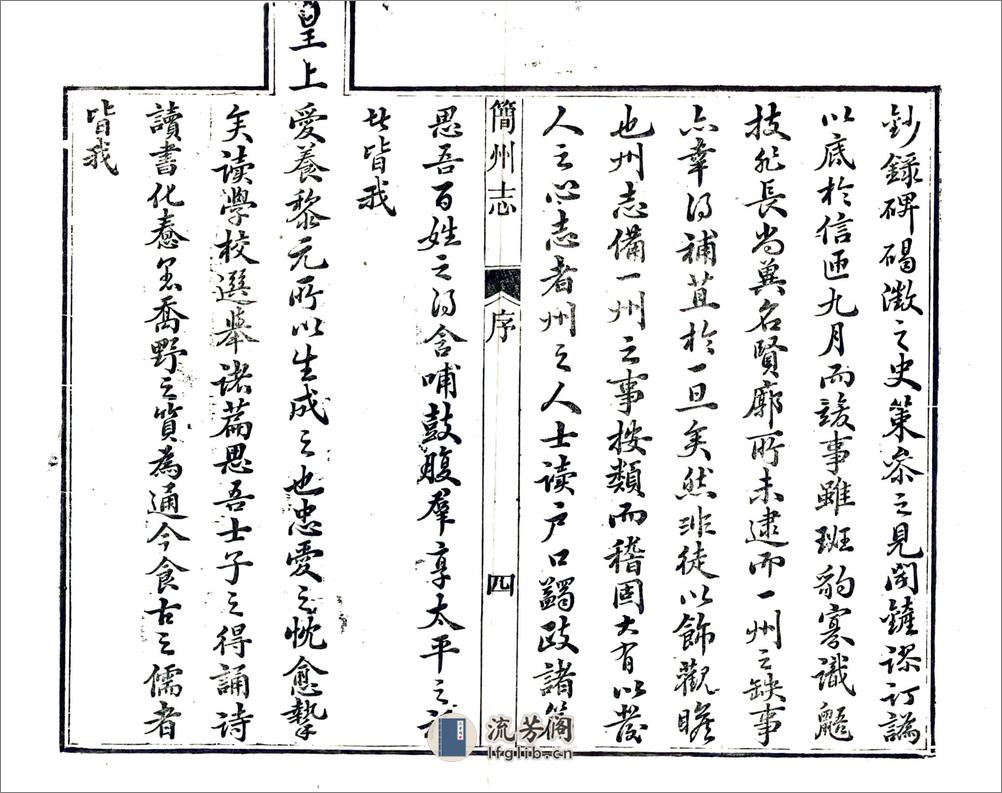 鈔錄碑碣澂之史策叅之見聞鏟謬訂譌
以底於信匝九月而竣事雖班豹寡識
技非長尚兾名賢廓所未逮而一州之缺事
亦幸得補苴於一旦矣然非徒以飾觀瞻
也州志備一州之事按類而稽固大有以發
人之心志者州之人士读户口蠲政諸
簡州志
序
四
思吾百姓之得含哺鼓腹羣享太平之
此皆我
皇上愛養黎元所以生成之也忠愛之忱愈摯
矣读學校選舉诸篇思吾士子之得誦诗
讀書化惷愚喬野之質為通今食古之儒者
皆我
流芳阁
lfglib.cn